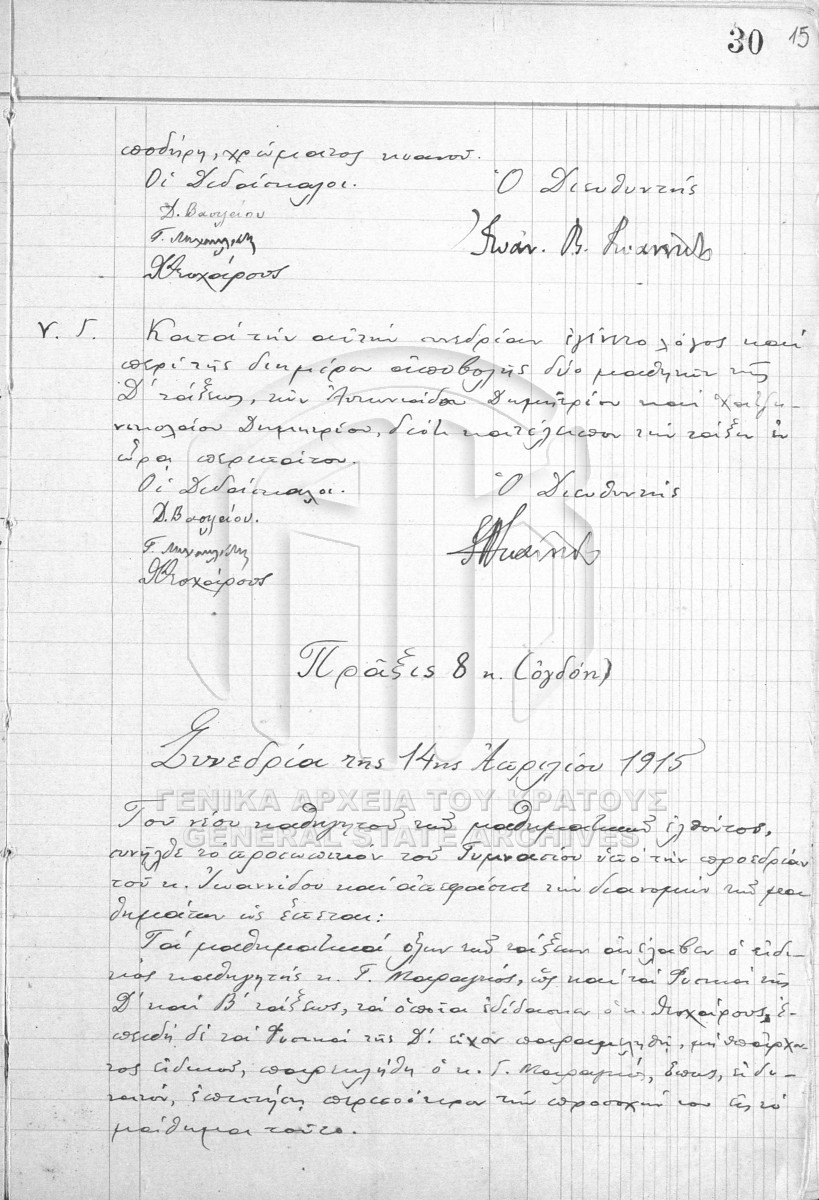 30 15
ποδήρη, χρώματος κυανοῦ.
Οἱ Διδάσκαλοι. Ὁ Διευθυντής
Δ. Βασιλείου
Γ. Μιχαηλίδης Ἰωάν. Β. Ἰωαννίδης
Θεοχάρους
Υ. Γ. Κατὰ τὴν αὐτὴν συνεδρίαν ἐγένετο λόγος καὶ
περὶ τῆς διημέρου ἀποβολῆς δύο μαθητῶν τῆς
Δ΄ τάξεως, τῶν Ἀντωνιάδου Δημητρίου καὶ Χατζη-
νικολάου Δημητρίου, διότι κατέλιπον τὴν τάξιν ἐν
ὥρᾳ περιπάτου.
Οἱ Διδάσκαλοι. Ὁ Διευθυντής
Δ. Βασιλείου.
Γ. Μιχαηλίδης
Θεοχάρους
Πρᾶξις 8η. (ὀγδόη)
Συνεδρία τῆς 14ης Ἀπριλίου 1915
ΓΕΝΙΚΑ ΑΡΧΕΙΑ ΤΟΥ ΚΡΑΤΟΥΣ
GENERAL STATE ARCHIVES
Τοῦ νέου καθηγητοῦ τῶν μαθηματικῶν ἐλθόντος,
συνῆλθε τὸ προσωπικὸν τοῦ Γυμνασίου ὑπὸ τὴν προεδρίαν
τοῦ κ. Ἰωαννίδου καὶ ἀπεφάσισε τὴν διανομὴν τῶν μα
θημάτων ὡς ἕπεται:
Τὰ μαθηματικὰ ὅλων τῶν τάξεων ἀνέλαβεν ὁ εἰδι-
κὸς καθηγητὴς κ. Γ. Μαραγκός, ὡς καὶ τὰ Φυσικὰ τῆς
Δ΄ καὶ Β΄ τάξεως, τὰ ὁποῖα ἐδίδασκεν ὁ κ. Θεοχάρους, ἐ-
πειδὴ δὲ τὰ Φυσικὰ τῆς Δ΄. εἶχον παραμεληθῆ, μὴ ὑπάρχον
τος εἰδικοῦ, παρεκλήθη ὁ κ. Γ. Μαραγκός, ὅπως, εἰ δυ-
νατόν, ἐπιστήσῃ περισσότερον τὴν προσοχήν του εἰς τὸ
μάθημα τοῦτο.